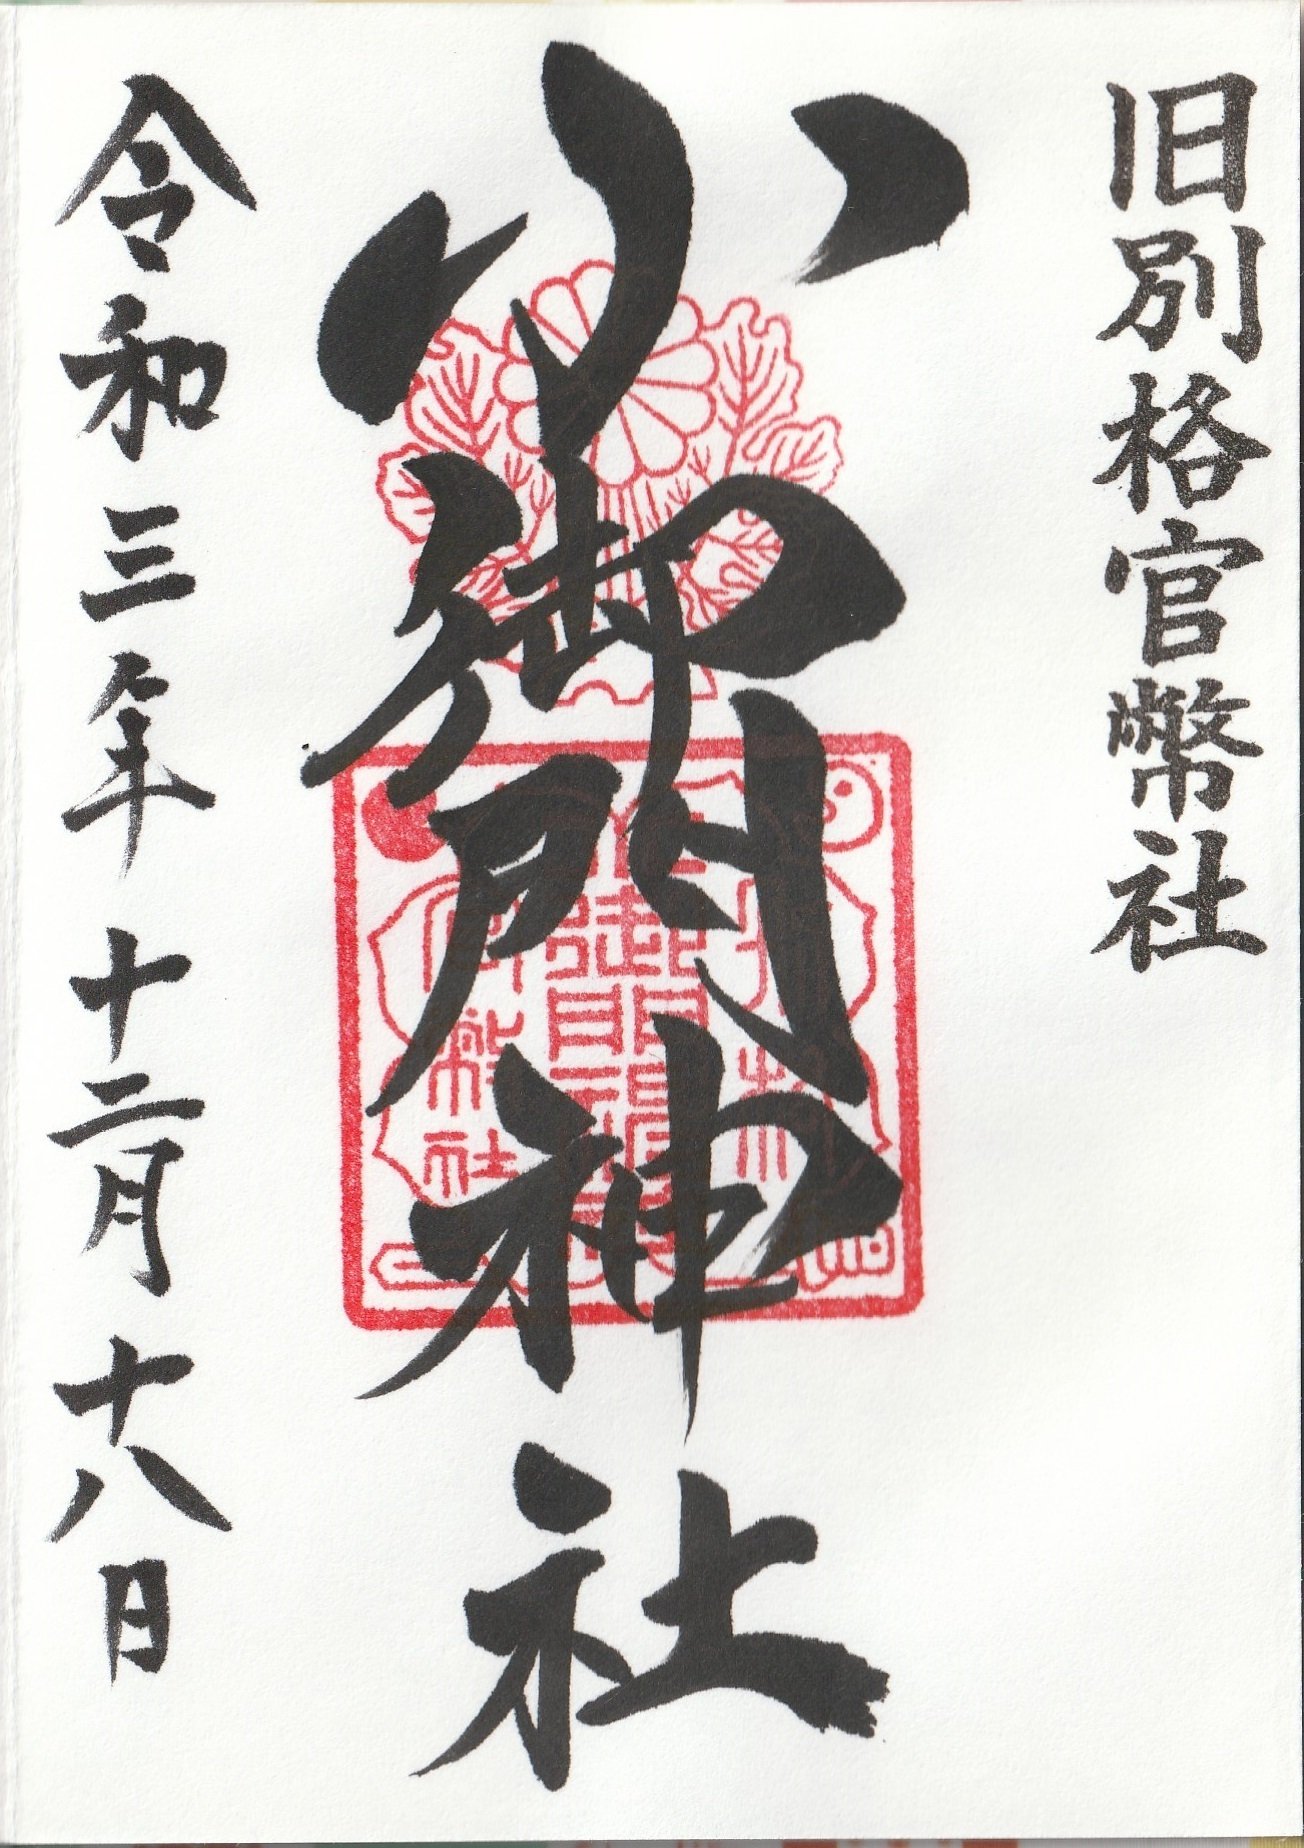 旧別格官幣社
小御門神社
令和三年十二月十八日